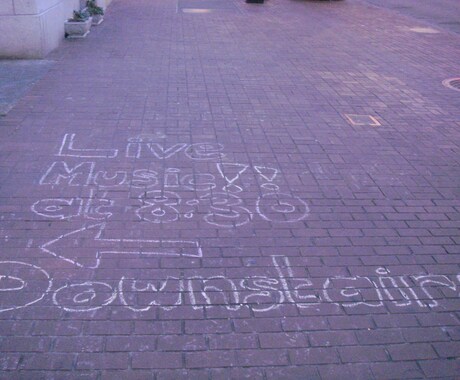 Live
Music!!
at 8:30
Downstair